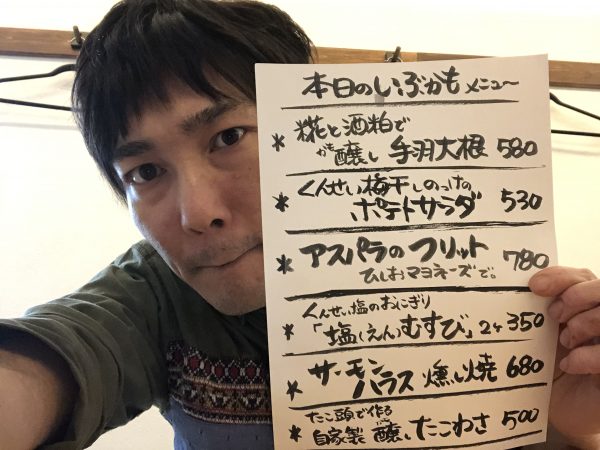 本日のいぶかもメニュー
* 糀と酒粕で
かも醸し 手羽大根 580
* くんせい梅干しのっけの
ポテトサラダ 530
* アスパラのフリット 780
ひしおマヨネーズで。
くんせい塩のおにぎり
* 「塩(えん)むすび」2ヶ 350
* サーモン
ハラス 燻し焼 680
たこ頭で作る
* 自家製 醸したこわさ 500